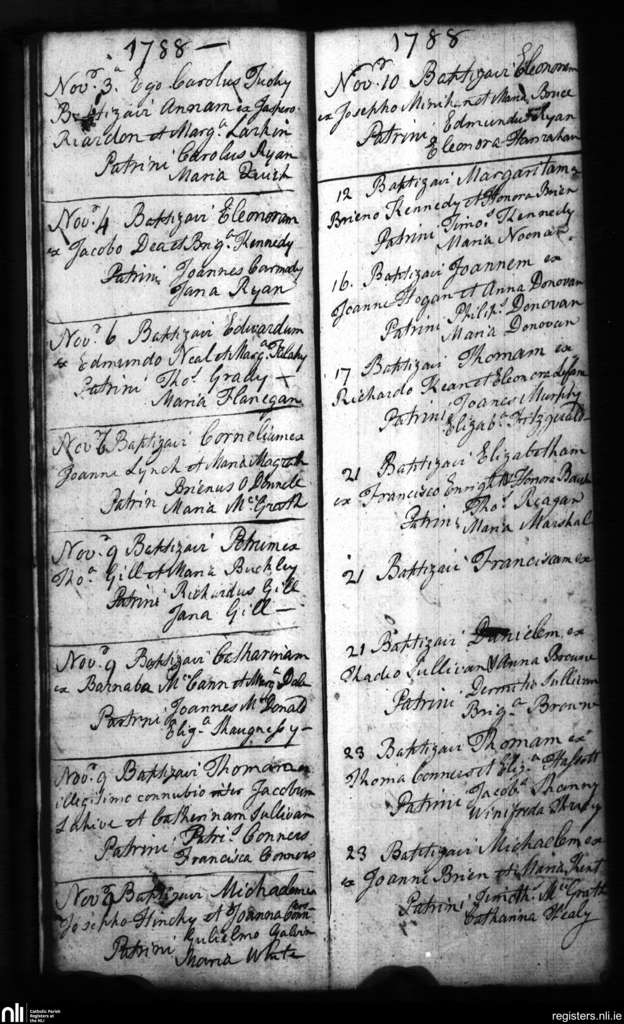 1788 —
Novr. 3a. Ego Carolus Tuohy
Baptizavi Annam ex Jaspero
Reardon et Marga. Larkin
Patrini Carolus Ryan
Maria
Novr. 4 Baptizavi Eleonoram
ex Jacobo Dea et Briga. Kennedy
Patrini Joannes Carmody
Jana Ryan
Novr. 6 Baptizavi Edwardum
ex Edmundo Neal et Marga.
Patrini Thos. Grady
Maria Flanegan
Novr. Baptizavi Cornelium ex
Joanne Lynch et Maria Magrath
Brienus O Donnell
Patrin Maria Mc Grath
Novr. 9 Baptizavi Petrum ex
Thoa. Gill et Maria Buckley
Patrini Richardus Gill
Jana Gill —
Novr. 9 Baptizavi Catharinam
ex Barnaba Mc Cann et Marga. Dale
Patrini Joannes Mc Donald
Eliza. Shaugnessy —
Novr. 9 Baptizavi Thomam ex
illegitimo connubio inter Jacobum
Lahive et Catherinam Sullivan
Patrini Patris. Conners
Francisca Conners
Novr. 9 Baptizavi Michaelem ex
Josepho Hinchy et Joanna
Patrini Gulielmo Galvin
Maria White
1788
Novr. 10 Baptizavi Eleonoram
ex Josepho Minihan et Maria Bruce
Patrini Edmundus Ryan
Eleonora Hanrahan
12 Baptizavi Margaritam ex
Brieno Kennedy et Honora Brien
Patrini Timos. Kennedy
Maria Noonan
16. Baptizavi Joannem ex
Joanne Hogan et Anna Donovan
Patrini Philips. Donovan
Maria Donovan
17 Baptizavi Thomam ex
Richardo Kean et Eleonora
Patrini Joanes Murphy
Elizab. Fitzgerald —
21 Baptizavi Elizabetham
ex Francisco Enright & Honora
Patrini Thos. Reagan
Maria Marshal
21 Baptizavi Franciscam ex
21 Baptizavi Danielem ex
Thadeo Sullivan & Anna Browne
Patrini Dermitio Sullivan
Briga. Browne
23 Baptizavi Thomam ex
Thoma Conners et Eliza.
Patrini Jacobs. Shanny
Winifreda
23 Baptizavi Michaelem ex
ex Joanne Brien et Maria Kent
Patrini Timoth. Mc Grath
Catharina Healy
nli Catholic Parish
Registers at
the NLI
registers.nli.ie